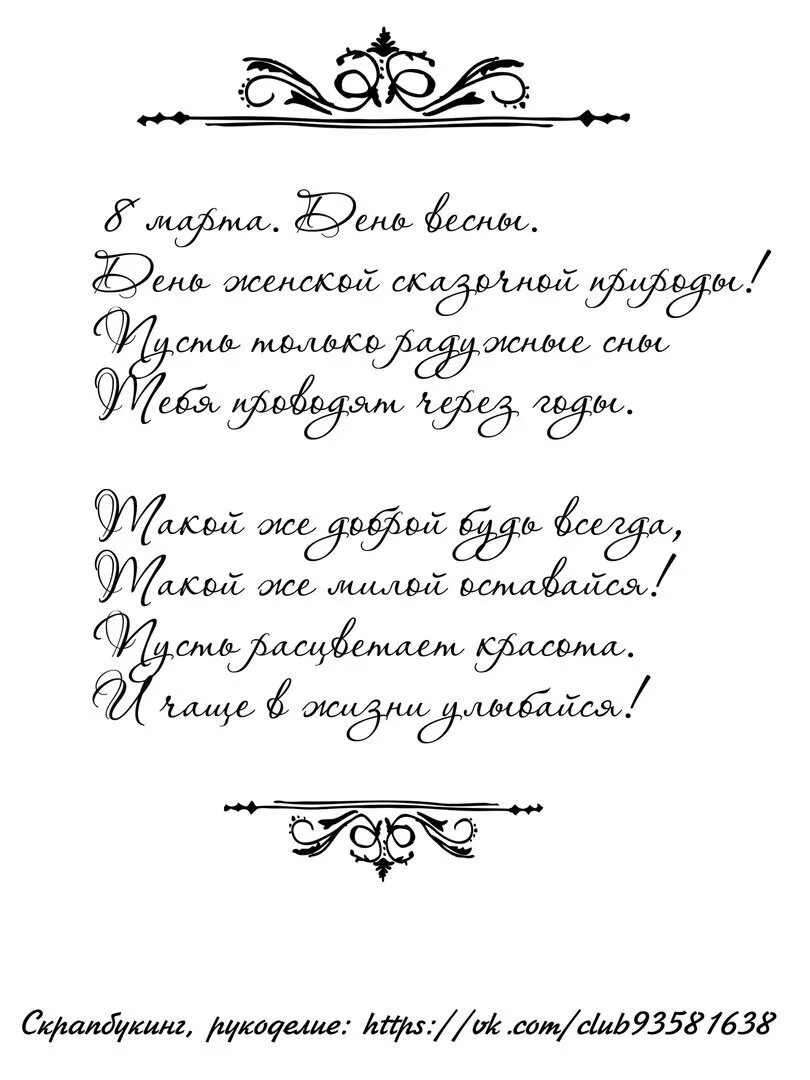 8 марта. День весны.
День женской сказочной природы!
Пусть только радужные сны
Тебя проводят через годы.
Такой же доброй будь всегда,
Такой же милой оставайся!
Пусть расцветает красота.
И чаще в жизни улыбайся!
Скрапбукинг, рукоделие: https://vk.com/club93581638